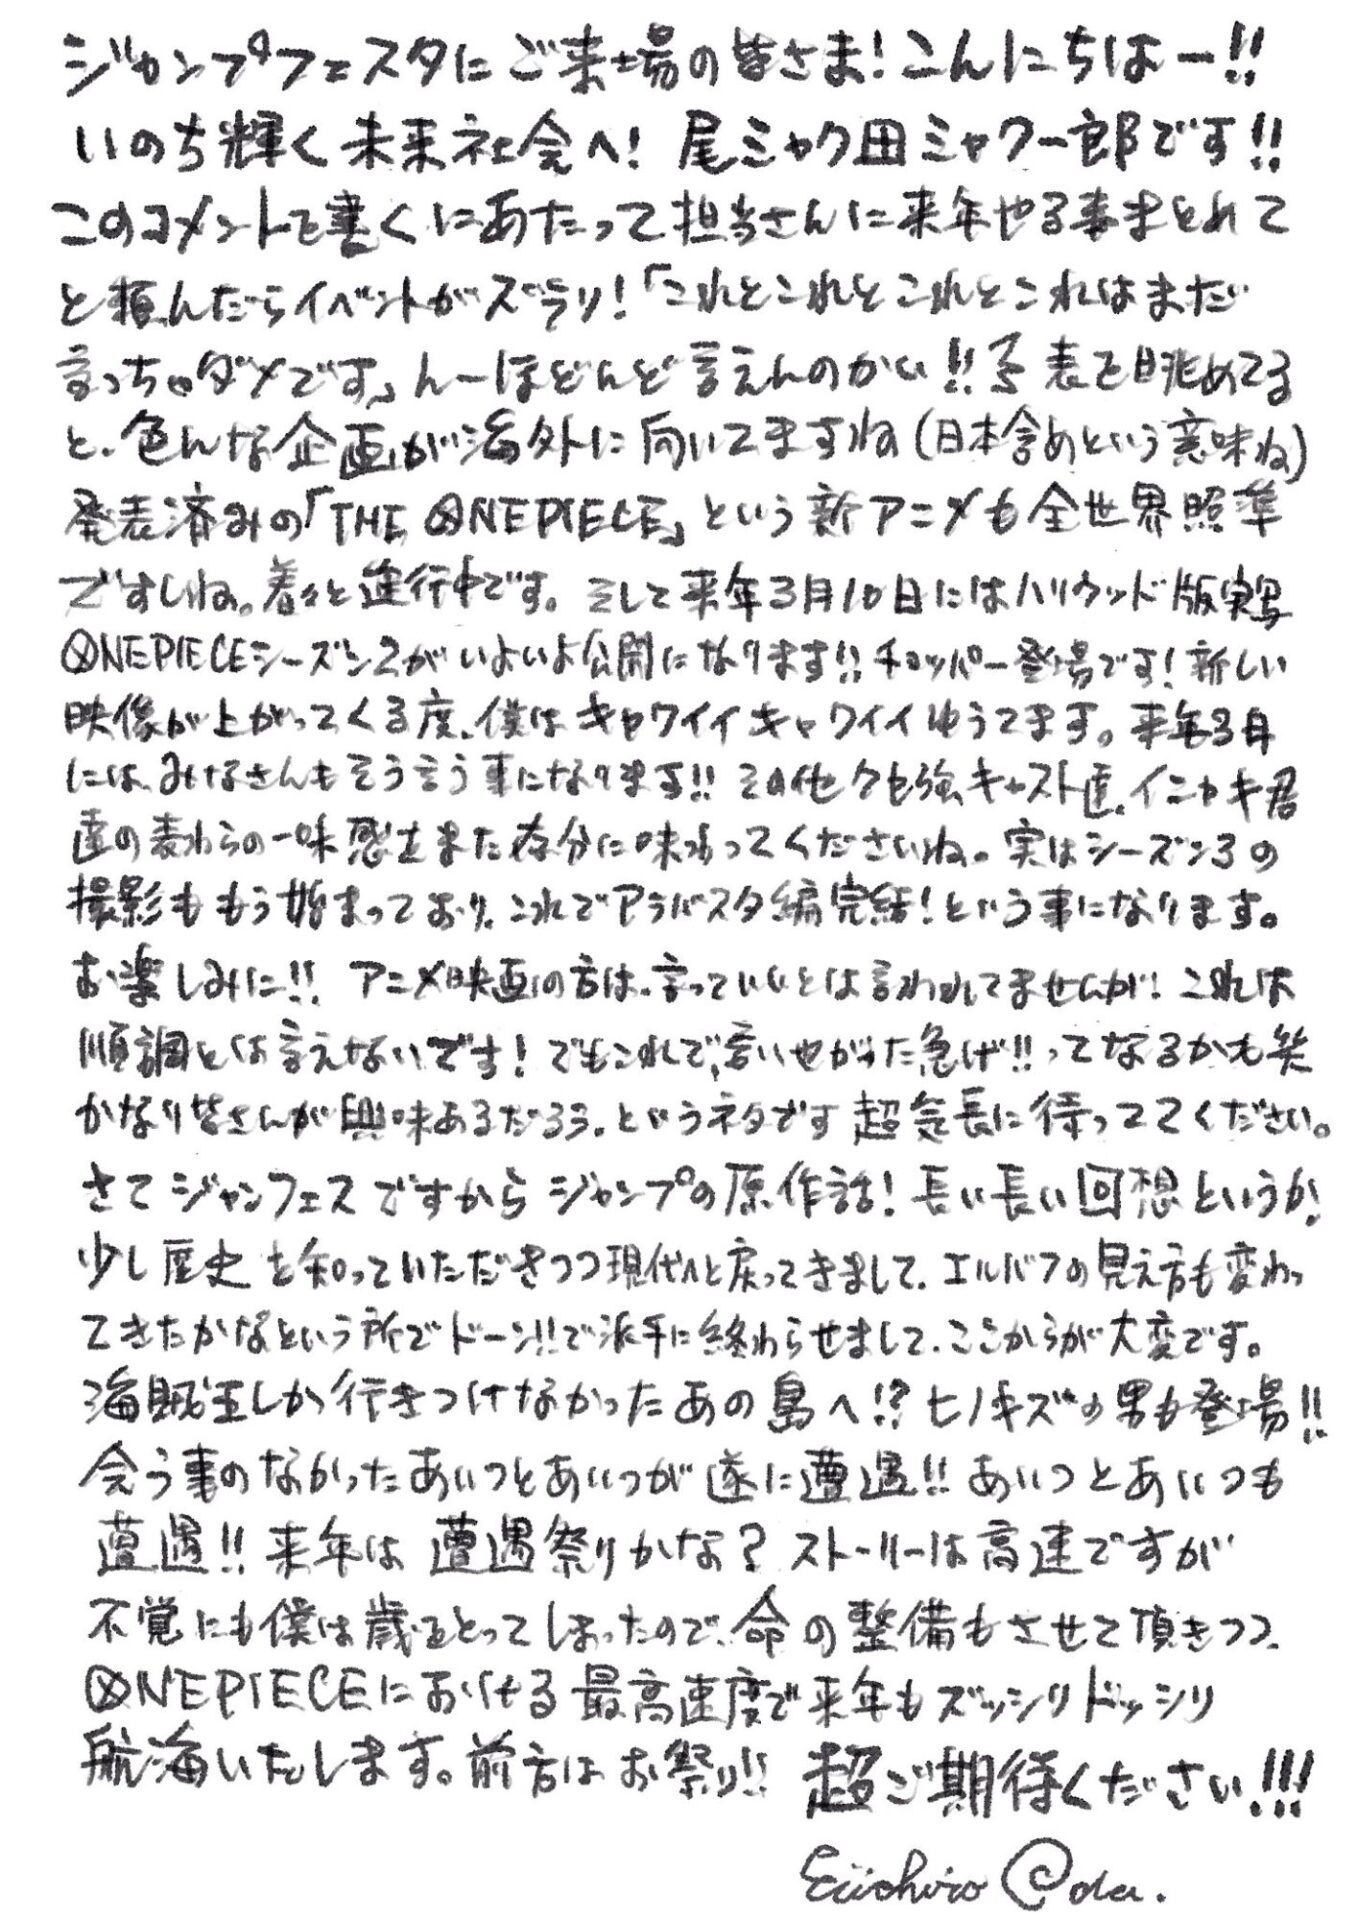 ジャンプフェスタにご来場の皆さま!こんにちはー!!
いのち輝く未来社会へ! 尾ミャク田ミャク一郎です!!
このコメントを書くにあたって担当さんに来年やる事まとめて
と頼んだらイベントがズラリ!「これとこれとこれとこれはまだ
言っちゃダメです」んーほどんど言えんのかい!! 表を眺めてる
と、色んな企画が海外に向いてますね(日本含めという意味ね)
発表済みの「THE ONE PIECE」という新アニメも全世界照準
ですしね。着々と進行中です。そして来年3月10日にはハリウッド版実写
ONE PIECEシーズン2がいよいよ公開になります!! チョッパー登場です! 新しい
映像が上がってくる度、僕はキャワイイキャワイイゆうてます。来年3月
には、みなさんもそう言う事になります!! その他クセ強キャスト達、イニャキ君
達の麦わらの一味感もまた存分に味わってくださいね。実はシーズン3の
撮影ももう始まっており、これでアラバスタ編完結!という事になります。
お楽しみに!! アニメ映画の方は、言っていいとは言われてませんが! これは
順調とは言えないです! でもこれで、言いやがった急げ!!ってなるかも笑
かなり皆さんが興味あるだろう、というネタです 超気長に待っててください。
さてジャンフェスですからジャンプの原作話! 長い長い回想というか!
少し歴史を知っていただきつつ現代へと戻ってきまして、エルバフの見え方も変わっ
てきたかなという所でドーン!!で派手に終わらせまして、ここからが大変です。
海賊王しか行きつけなかったあの島へ!? ヒノキズの男も登場!!
会う事のなかったあいつとあいつが遂に遭遇!! あいつとあいつも
遭遇!! 来年は遭遇祭りかな? ストーリーは高速ですが
不覚にも僕は歳をとってしまったので、命の整備もさせて頂きつつ、
ONE PIECEにおける最高速度で来年もズッシリドッシリ
航海いたします。前方はお祭り!! 超ご期待ください!!!
Eiichiro Oda.